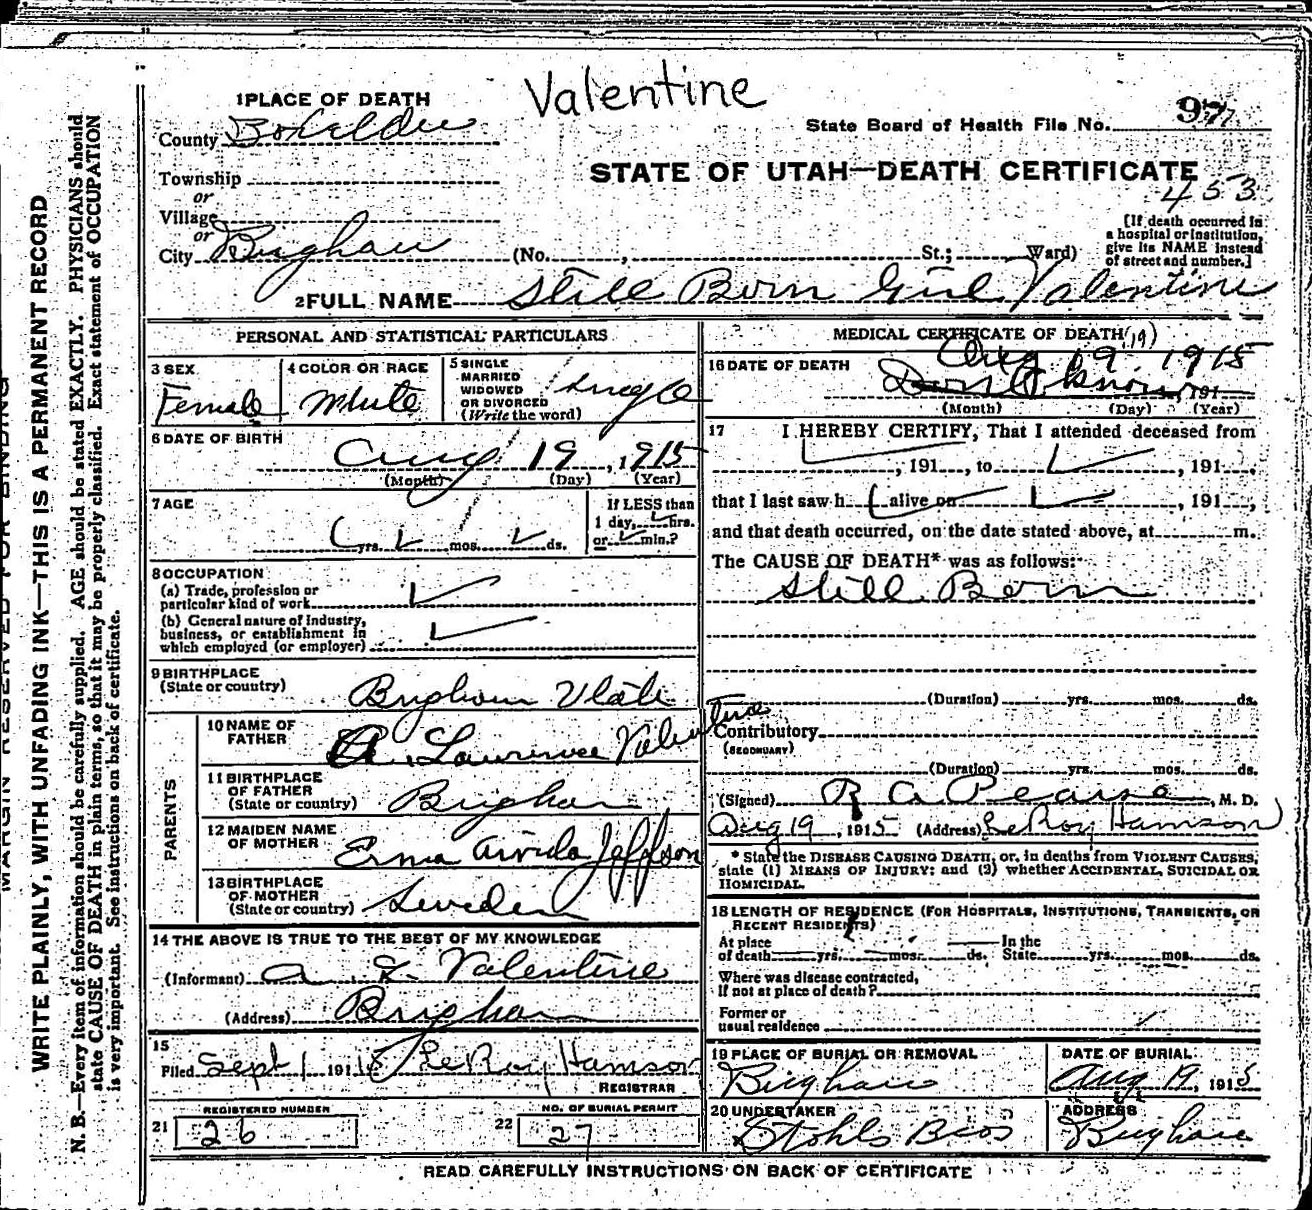 Valentine
1 PLACE OF DEATH
County Boxelder
State Board of Health File No. 97
Township
or
Village
or
City Brigham
STATE OF UTAH—DEATH CERTIFICATE
453
(No. , St.; Ward)
[If death occurred in
a hospital or institution,
give its NAME instead
of street and number.]
2 FULL NAME Still Born Girl Valentine
PERSONAL AND STATISTICAL PARTICULARS
3 SEX
Female
4 COLOR OR RACE
White
5 SINGLE
MARRIED
WIDOWED
OR DIVORCED
(Write the word)
Single
6 DATE OF BIRTH
Aug 19, 1915
(Month) (Day) (Year)
7 AGE
yrs. mos. ds.
If LESS than
1 day, hrs.
or min.?
8 OCCUPATION
(a) Trade, profession or
particular kind of work
(b) General nature of Industry,
business, or establishment in
which employed (or employer)
9 BIRTHPLACE
(State or country)
Brigham Utah
PARENTS
10 NAME OF
FATHER
A. Lawrence Valentine
11 BIRTHPLACE
OF FATHER
(State or country)
Brigham
12 MAIDEN NAME
OF MOTHER
Erma
13 BIRTHPLACE
OF MOTHER
(State or country)
Sweden
14 THE ABOVE IS TRUE TO THE BEST OF MY KNOWLEDGE
(Informant) A. L. Valentine
(Address) Brigham
15
Filed Sept 1 191 LeRoy Hamson
REGISTRAR
REGISTERED NUMBER
21 26
NO. OF BURIAL PERMIT
22 27
MEDICAL CERTIFICATE OF DEATH (19)
16 DATE OF DEATH
Aug 19. 1915
Don't know, 191
(Month) (Day) (Year)
17 I HEREBY CERTIFY, That I attended deceased from
, 191 , to , 191 ,
that I last saw h alive on , 191 ,
and that death occurred, on the date stated above, at m.
The CAUSE OF DEATH* was as follows:
Still Born
(Duration) yrs. mos. ds.
Contributory
(SECONDARY)
(Duration) yrs. mos. ds.
(Signed) R A Pearse, M. D.
Aug 19, 1915 (Address) LeRoy Hamson
* State the DISEASE CAUSING DEATH, or, in deaths from VIOLENT CAUSES,
state (1) MEANS OF INJURY: and (2) whether ACCIDENTAL, SUICIDAL OR
HOMICIDAL.
18 LENGTH OF RESIDENCE (FOR HOSPITALS, INSTITUTIONS, TRANSIENTS, OR
RECENT RESIDENTS)
At place In the
of death yrs. mos. ds. State yrs. mos. ds.
Where was disease contracted,
If not at place of death?
Former or
usual residence
19 PLACE OF BURIAL OR REMOVAL
Brigham
DATE OF BURIAL
Aug 19, 1915
20 UNDERTAKER
Stohls Bros
ADDRESS
Brigham
READ CAREFULLY INSTRUCTIONS ON BACK OF CERTIFICATE
MARGIN RESERVED FOR BINDING
WRITE PLAINLY, WITH UNFADING INK—THIS IS A PERMANENT RECORD
N. B.—Every item of information should be carefully supplied. AGE should be stated EXACTLY. PHYSICIANS should
state CAUSE OF DEATH in plain terms, so that it may be properly classified. Exact statement of OCCUPATION
is very important. See instructions on back of certificate.